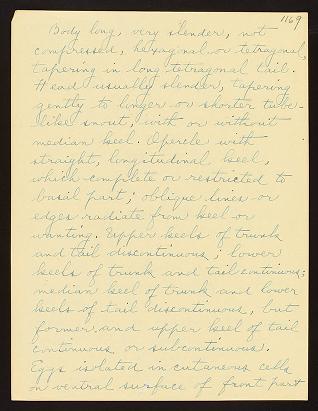 1169
Body long, very slender, not
compressed, hexagonal or tetragonal,
tapering in long tetragonal tail.
Head usually slender, tapering
gently to longer or shorter tube-
like snout, with or without
median keel. Opercle with
straight, longitudinal keel,
which complete or restricted to
basal part; oblique lines or
edges radiate from keel or
wanting. Upper keels of trunk
and tail discontinuous; lower
keels of trunk and tail continuous;
median keel of trunk and lower
keels of tail discontinuous, but
former and upper keel of tail
continuous or subcontinuous.
Eggs isolated in cutaneous cells
on ventral surface of front part